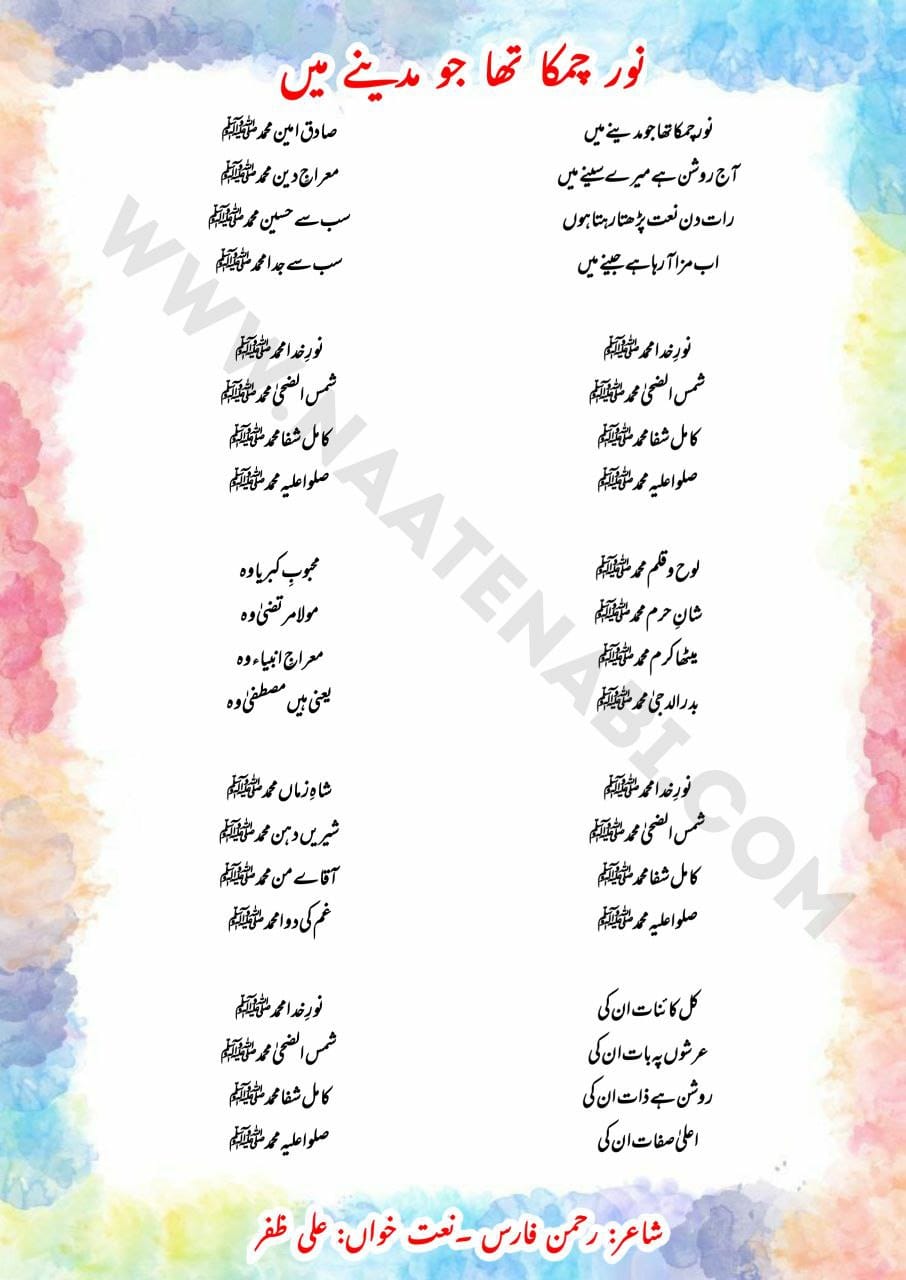 نور چمکا تھا جو مدینے میں
نور چمکا تھا جو مدینے میں
آج روشن ہے میرے سینے میں
رات دن نعت پڑھتا رہتا ہوں
اب مزا آ رہا ہے جینے میں
نورِ خدا محمد ﷺ
شمس الضحیٰ محمد ﷺ
کامل شفا محمد ﷺ
صلوا علیہ محمد ﷺ
لوح و قلم محمد ﷺ
شانِ حرم محمد ﷺ
میٹھا کرم محمد ﷺ
بدر الدجیٰ محمد ﷺ
نورِ خدا محمد ﷺ
شمس الضحیٰ محمد ﷺ
کامل شفا محمد ﷺ
صلوا علیہ محمد ﷺ
کل کائنات ان کی
عرشوں پہ بات ان کی
روشن ہے ذات ان کی
اعلیٰ صفات ان کی
صادق امین محمد ﷺ
معراجِ دین محمد ﷺ
سب سے حسین محمد ﷺ
سب سے جدا محمد ﷺ
نورِ خدا محمد ﷺ
شمس الضحیٰ محمد ﷺ
کامل شفا محمد ﷺ
صلوا علیہ محمد ﷺ
محبوبِ کبریا وہ
مولا مرتضیٰ وہ
معراجِ انبیاء وہ
یعنی ہیں مصطفیٰ وہ
شاہِ زماں محمد ﷺ
شیریں دہن محمد ﷺ
آقاے من محمد ﷺ
غم کی دوا محمد ﷺ
نورِ خدا محمد ﷺ
شمس الضحیٰ محمد ﷺ
کامل شفا محمد ﷺ
صلوا علیہ محمد ﷺ
شاعر: رحمن فارس ۔ نعت خواں: علی ظفر
WWW.NAATENABI.COM